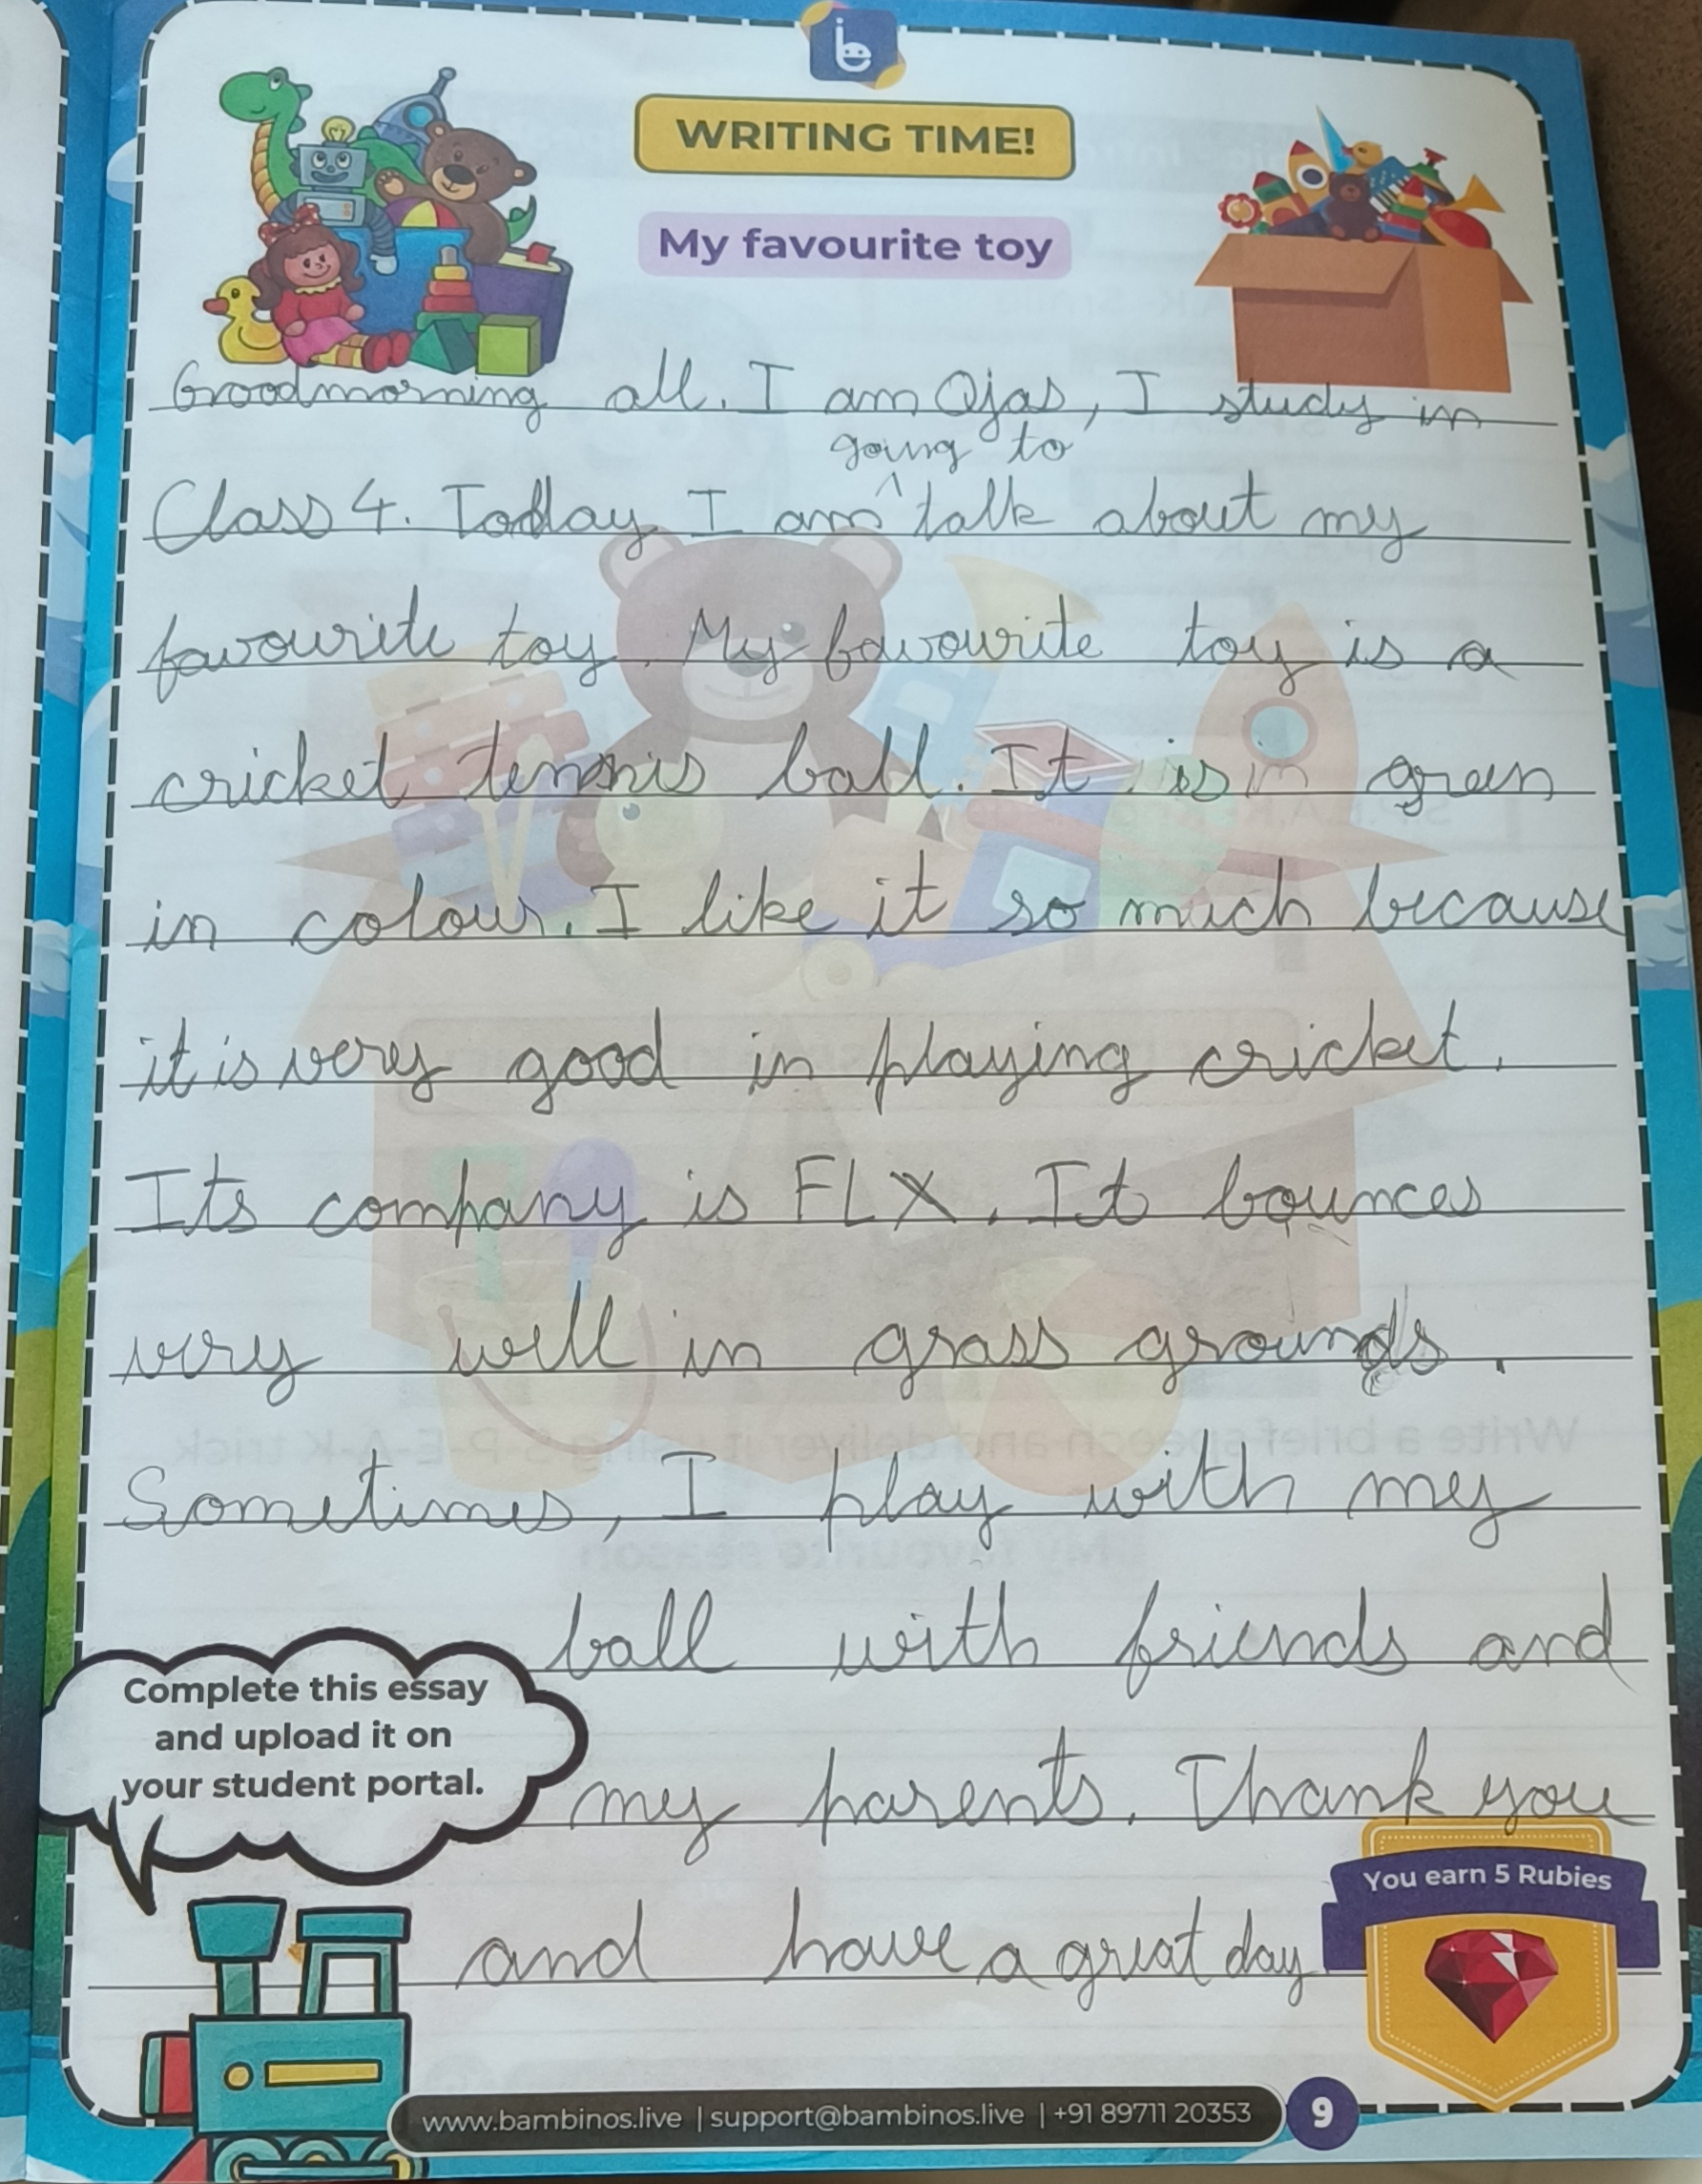 WRITING TIME!
My favourite toy
Goodmorning all. I am Ojas, I study in
going to
Class 4. Today I am ^ talk about my
favourite toy. My favourite toy is a
cricket tennis ball. It is green
in colour. I like it so much because
it is very good in playing cricket.
Its company is FLX. It bounces
very well in grass grounds.
Sometimes, I play with my
ball with friends and
my parents. Thank you
and have a great day.
Complete this essay
and upload it on
your student portal.
You earn 5 Rubies
www.bambinos.live | support@bambinos.live | +91 89711 20353
9